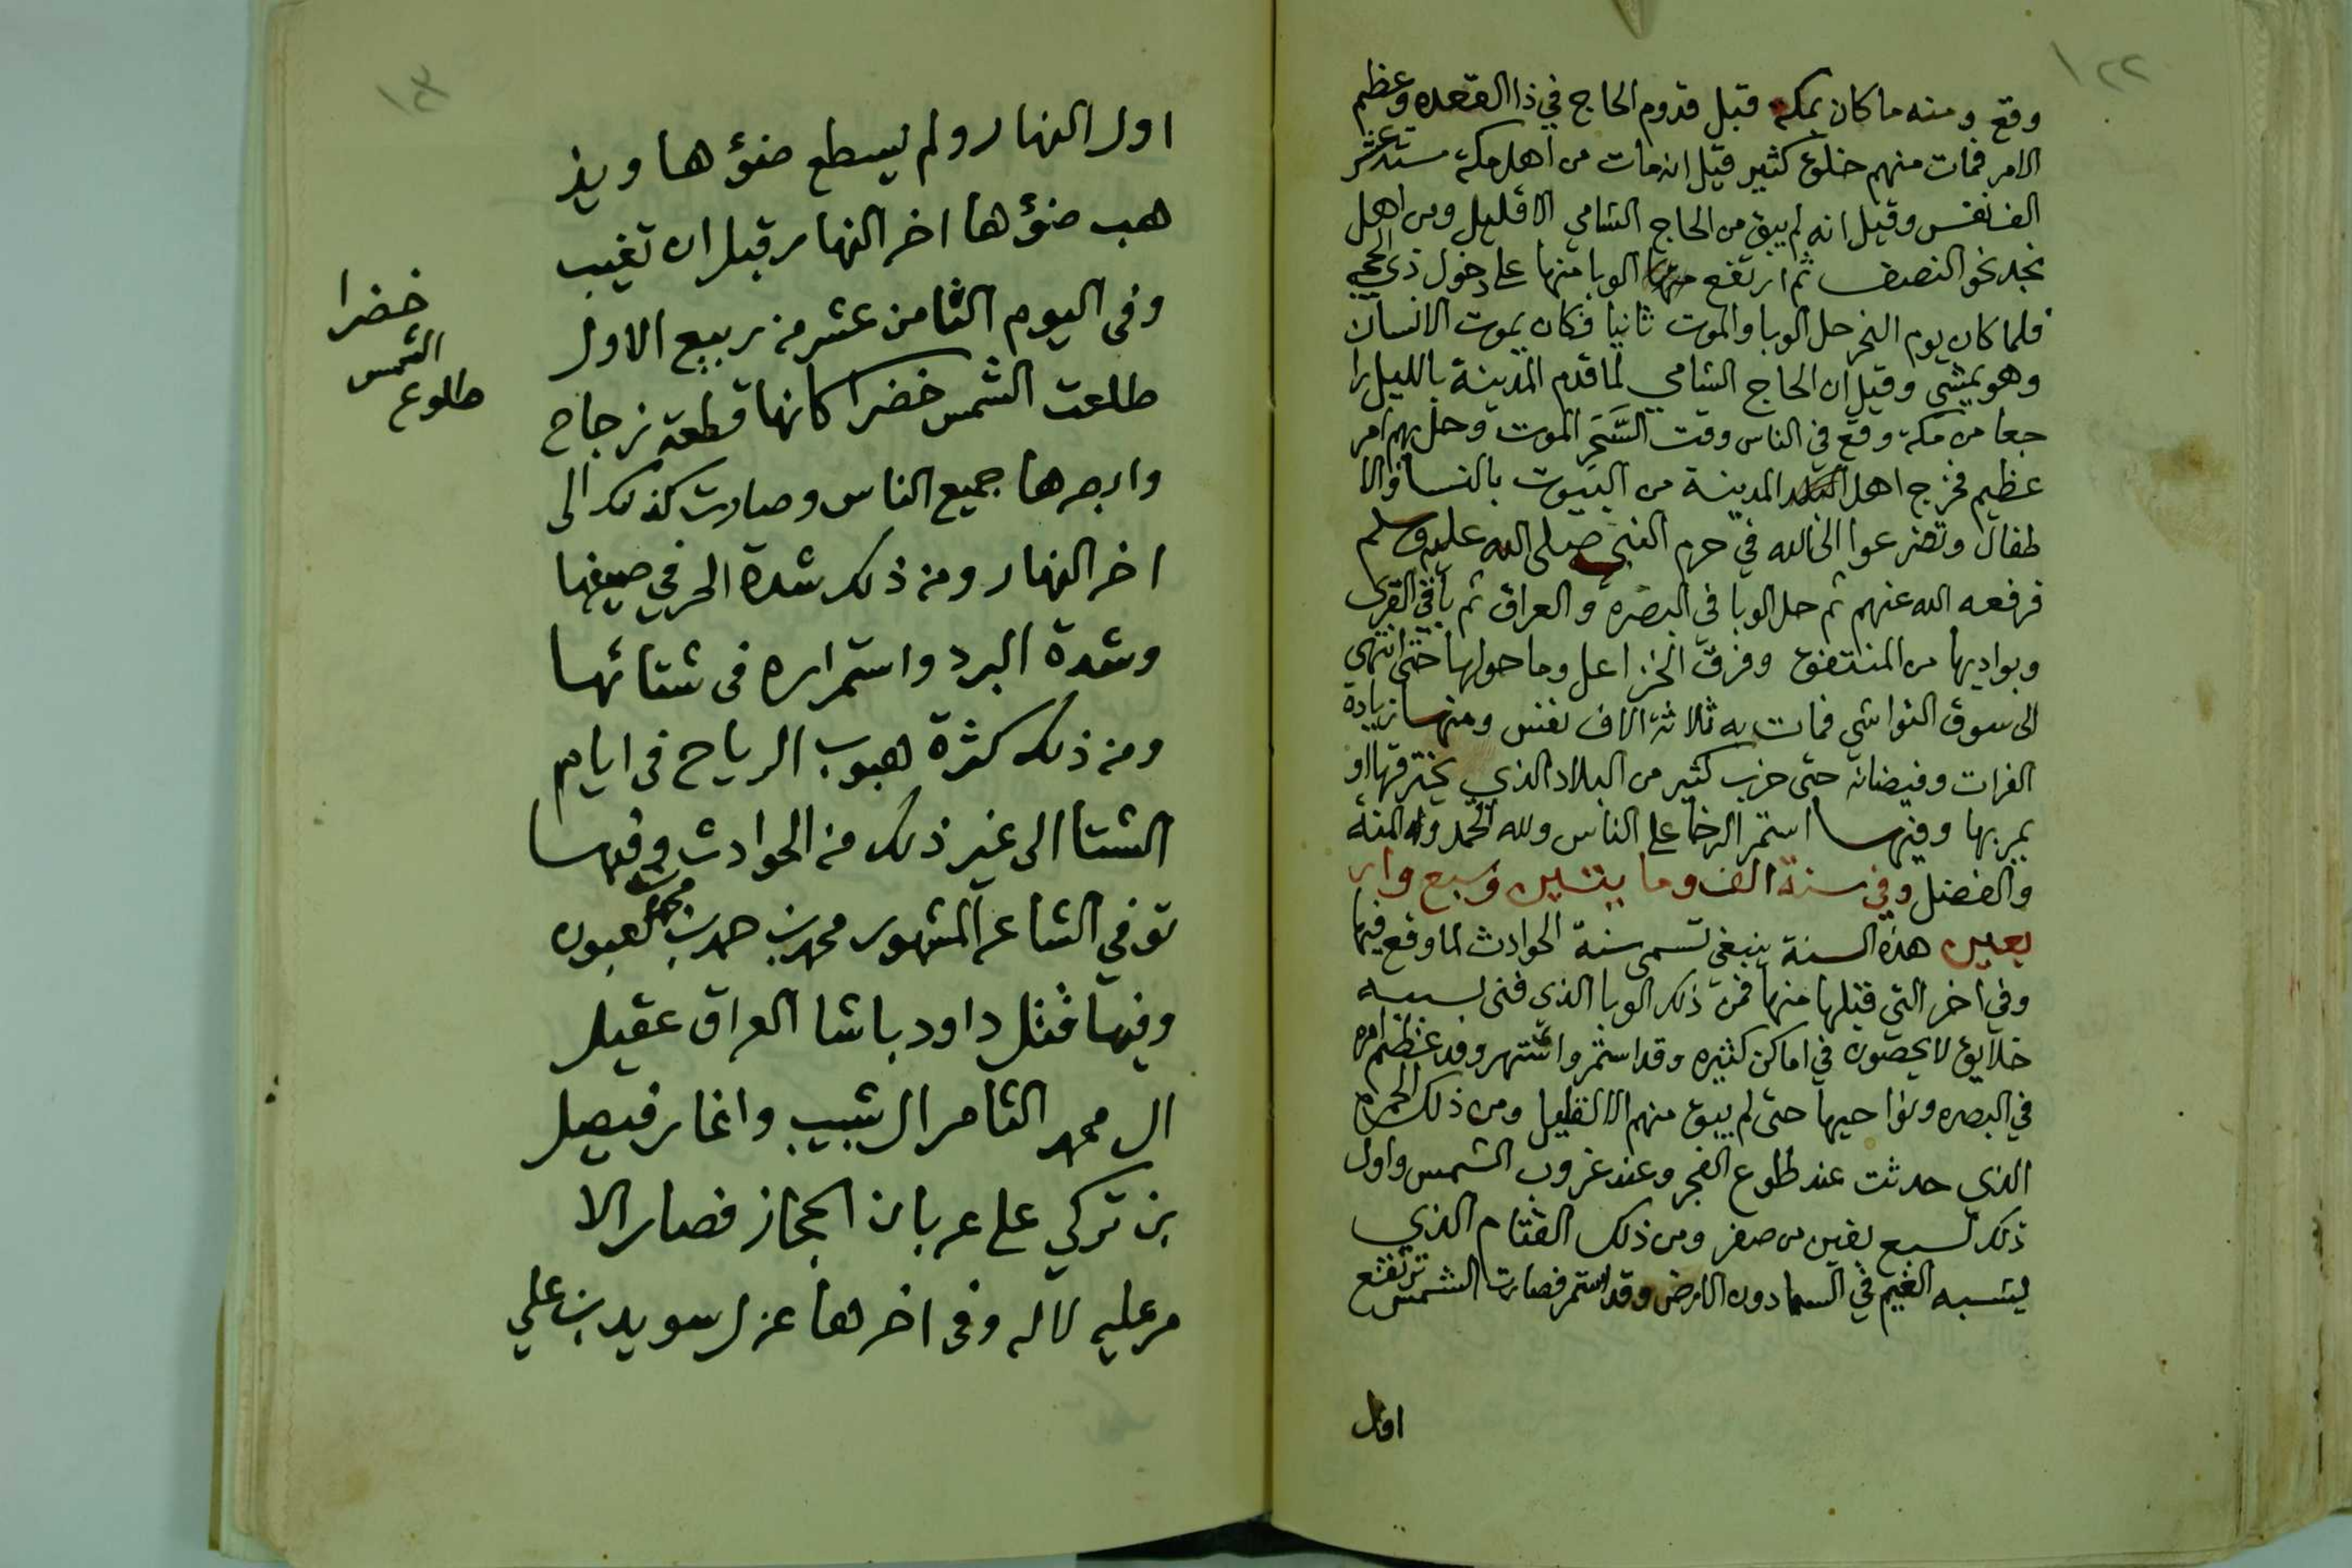 ١٢٢
وقع ومنه ما كان بمكة قبل قدوم الحاج في ذا القعده وعظم
الامر فمات منهم خلق كثير قيل انه مات من اهل مكة ستة عشر
الف نفس وقيل انه لم يبق من الحاج الشامي الا قليل ومن اهل
نجد نحو النصف ثم ارتفع الوبا منها على دخول ذي الحجه
فلما كان يوم النحر حل الوبا والموت ثانيا فكان يموت الانسان
وهو يمشي وقيل ان الحاج الشامي لما قدم المدينة بالليل را
جعا من مكة وقع في الناس وقت السَّحَر الموت وحل بهم امر
عظيم فخرج اهل المدينة من البيوت بالنسا والا
طفال وتضرعوا الى الله في حرم النبي صلى الله عليه وسلم
فرفعه الله عنهم ثم حل الوبا في البصرة والعراق ثم باقي القرى
وبواديها من المنتفق وفرق الخزاعل وما حولها حتى انتهى
الى سوق النواشي فمات به ثلاثة الاف نفس ومنها زيادة
الفرات وفيضانه حتى خرب كثير من البلاد الذي يخترقها او
يمر بها وفيها استمر الرخا على الناس ولله الحمد وله المنة
والفضل وفي سنة الف ومايتين وسبع وار
بعين هذه السنة ينبغي تسمى سنة الحوادث لما وقع فيها
وفي اخر التي قبلها منها فمن ذلك الوبا الذى فنى بسببه
خلايق لا يحصون في اماكن كثيره وقد استمر واشتهر وقد عظم امره
في البصره ونواحيها حتى لم يبق منهم الا القليل ومن ذلك الحمرة
الذي حدثت عند طلوع الفجر وعند غروب الشمس واول
ذلك لسبع بقين من صفر ومن ذلك القتام الذي
يشبه الغيم في السما دون الارض وقد استمر فصارت الشمس ترتفع
اول
١٢٣
اول النهار ولم يسطع ضؤها ويذ
هب ضؤها اخر النهار قبل ان تغيب
وفى اليوم الثامن عشر من ربيع الاول
طلعت الشمس خضرا كانها قطعة زجاج
وابصرها جميع الناس وصارت كذلك الى
اخر النهار ومن ذلك شدة الحر في صيفها
وشدة البرد واستمراره فى شتائها
ومن ذلك كثرة هبوب الرياح فى ايام
الشتا الى غير ذلك من الحوادث وفيها
توفي الشاعر المشهور محمد بن حمد بن محمد لعبون
وفيها قتل داود باشا العراق عقيل
ال محمد الثامر ال شبيب واغار فيصل
بن تركي على عربان الحجاز فصار الا
مر عليه لا له وفى اخرها عزل سويد بن علي
خضرا
الشمس
طلوع